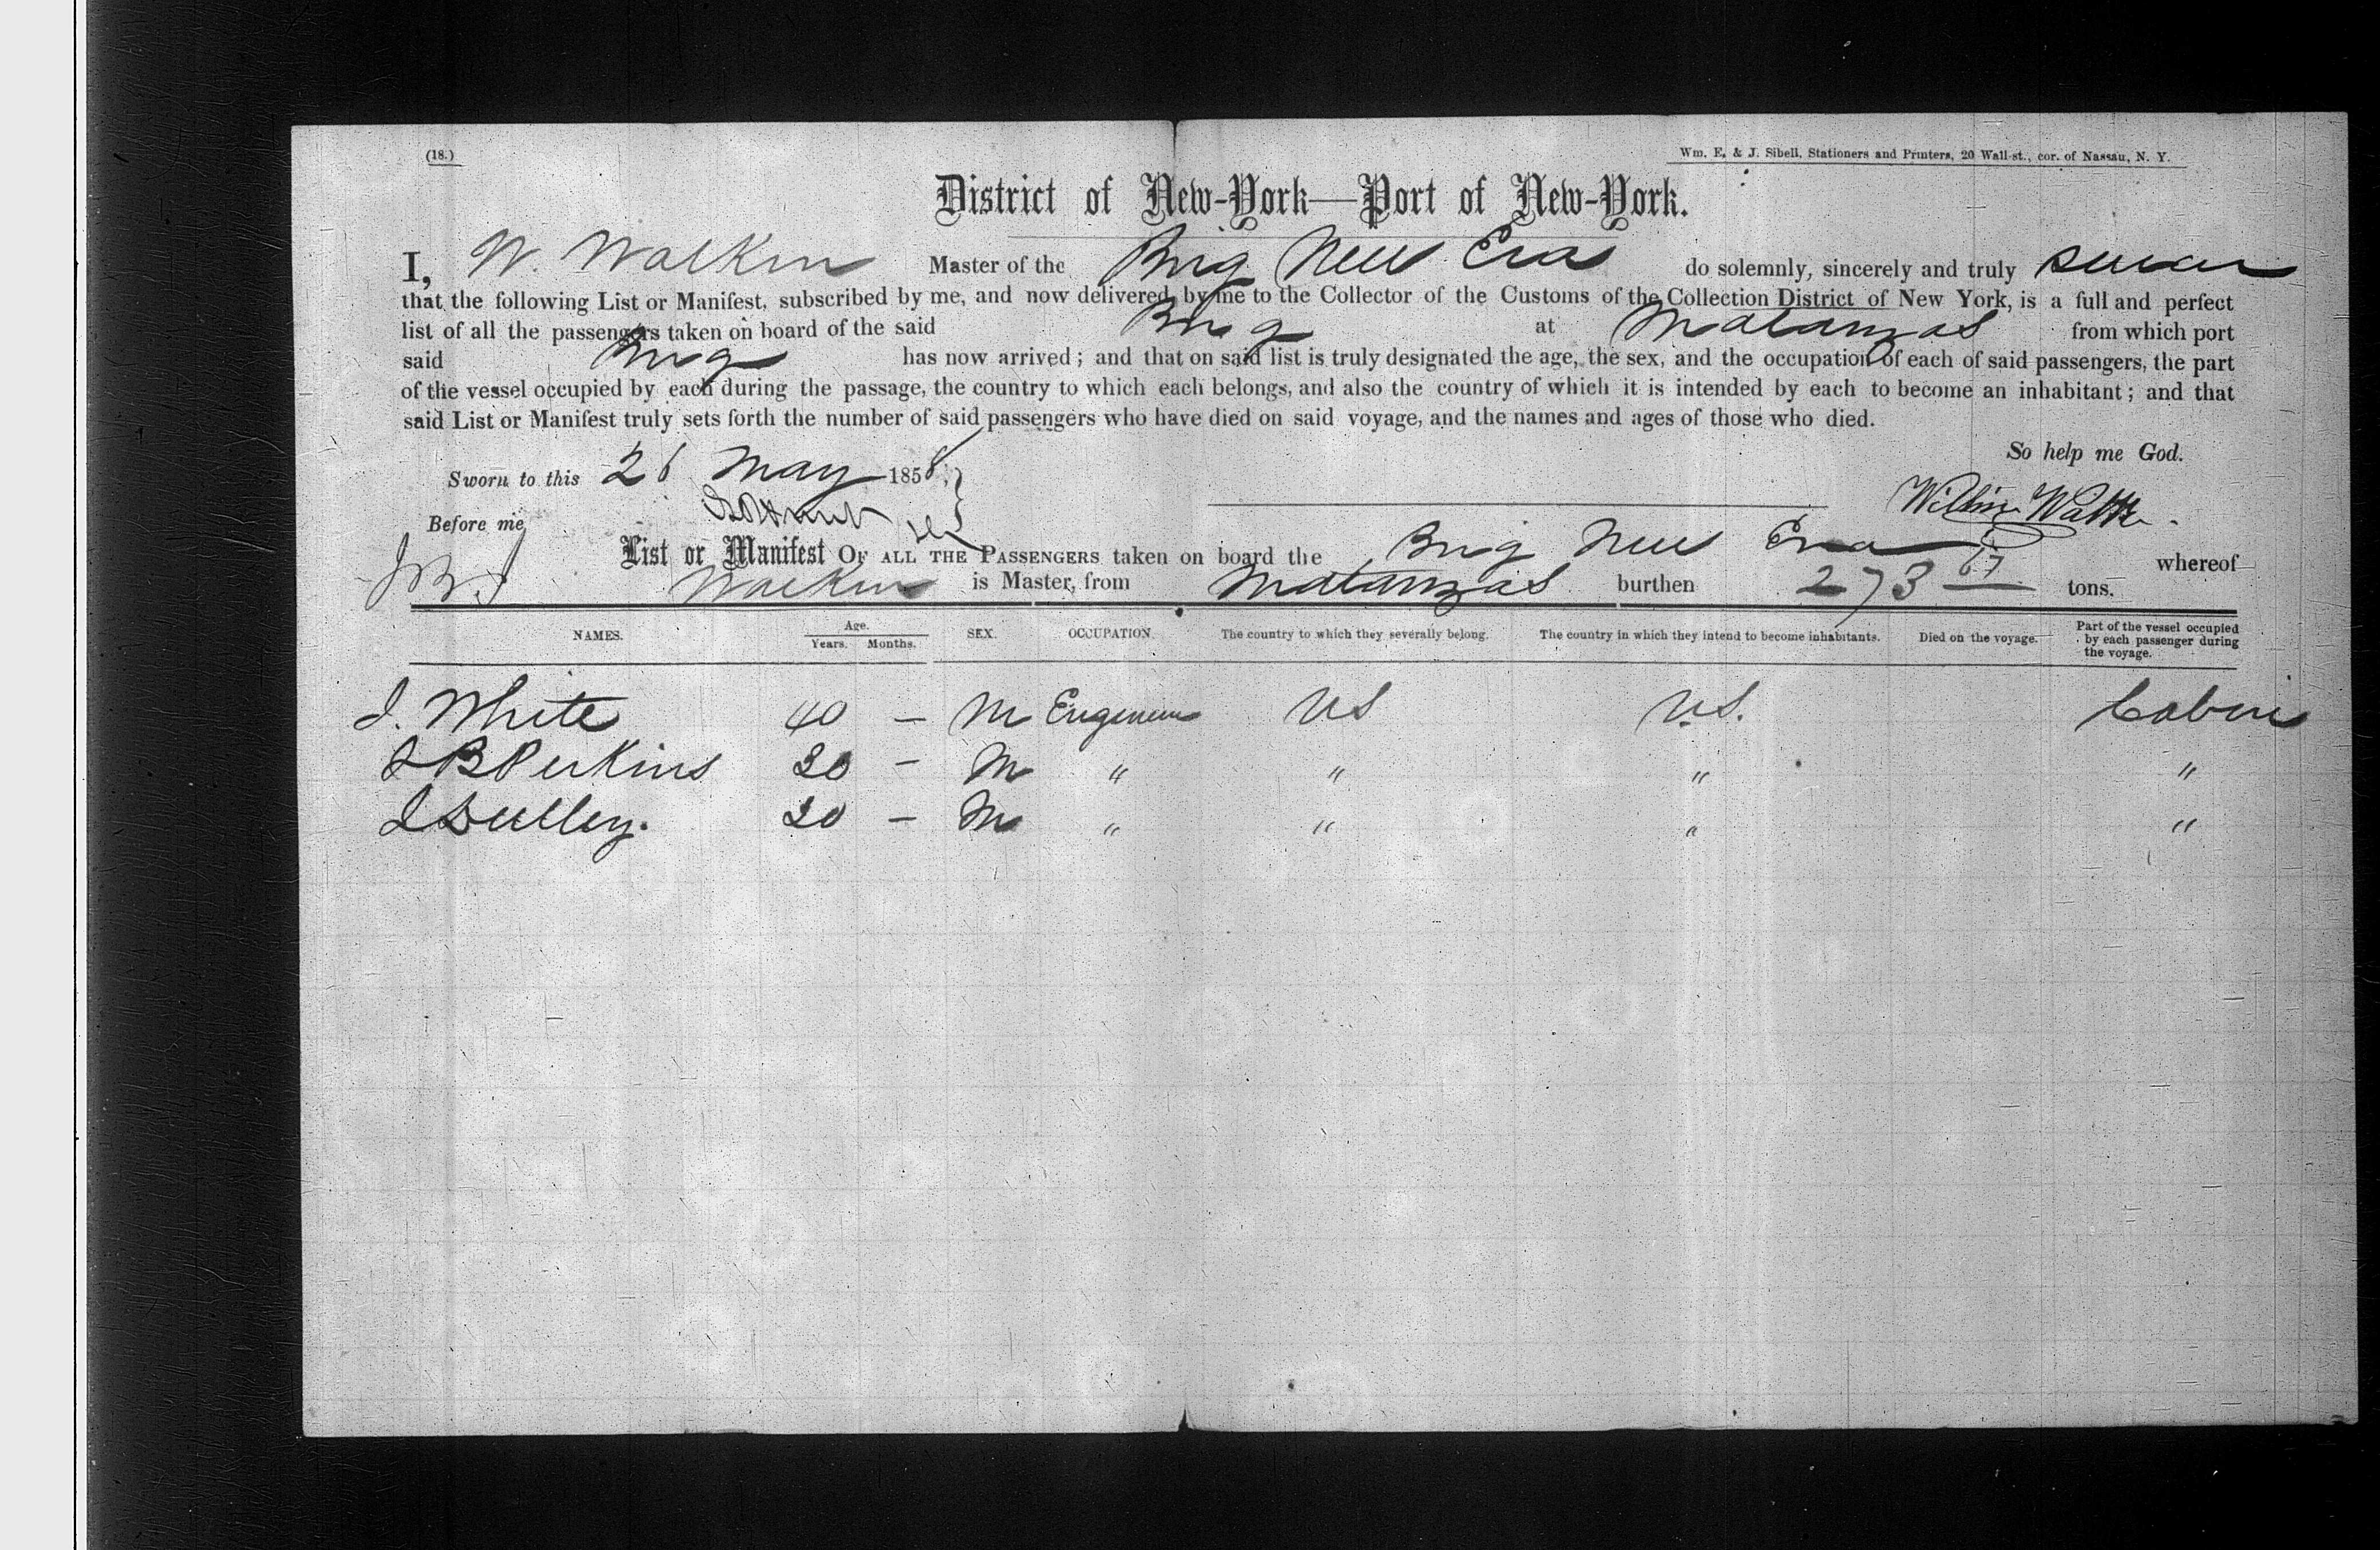 (18.)
Wm. E. & J. Sibell, Stationers and Printers, 20 Wall-st., cor. of Nassau, N. Y.
District of New-York—Port of New-York.
I, W. Walkin Master of the Brig New Era do solemnly, sincerely and truly swear
that the following List or Manifest, subscribed by me, and now delivered by me to the Collector of the Customs of the Collection District of New York, is a full and perfect
list of all the passengers taken on board of the said Brig at Matanzas from which port
said Brig has now arrived; and that on said list is truly designated the age, the sex, and the occupation of each of said passengers, the part
of the vessel occupied by each during the passage, the country to which each belongs, and also the country of which it is intended by each to become an inhabitant; and that
said List or Manifest truly sets forth the number of said passengers who have died on said voyage, and the names and ages of those who died.
So help me God.
Sworn to this 26 May 1858,
Before me,
List or Manifest OF ALL THE PASSENGERS taken on board the Brig New Era whereof
Walkin is Master, from Matanzas burthen 273 67 tons.
NAMES. Age. Years. Months. SEX. OCCUPATION. The country to which they severally belong. The country in which they intend to become inhabitants. Died on the voyage. Part of the vessel occupied by each passenger during the voyage.
J. White 40 — M Engineer US U.S. Cabin
J B Perkins 30 - M " " " "
J Dulley. 30 — M " " " "